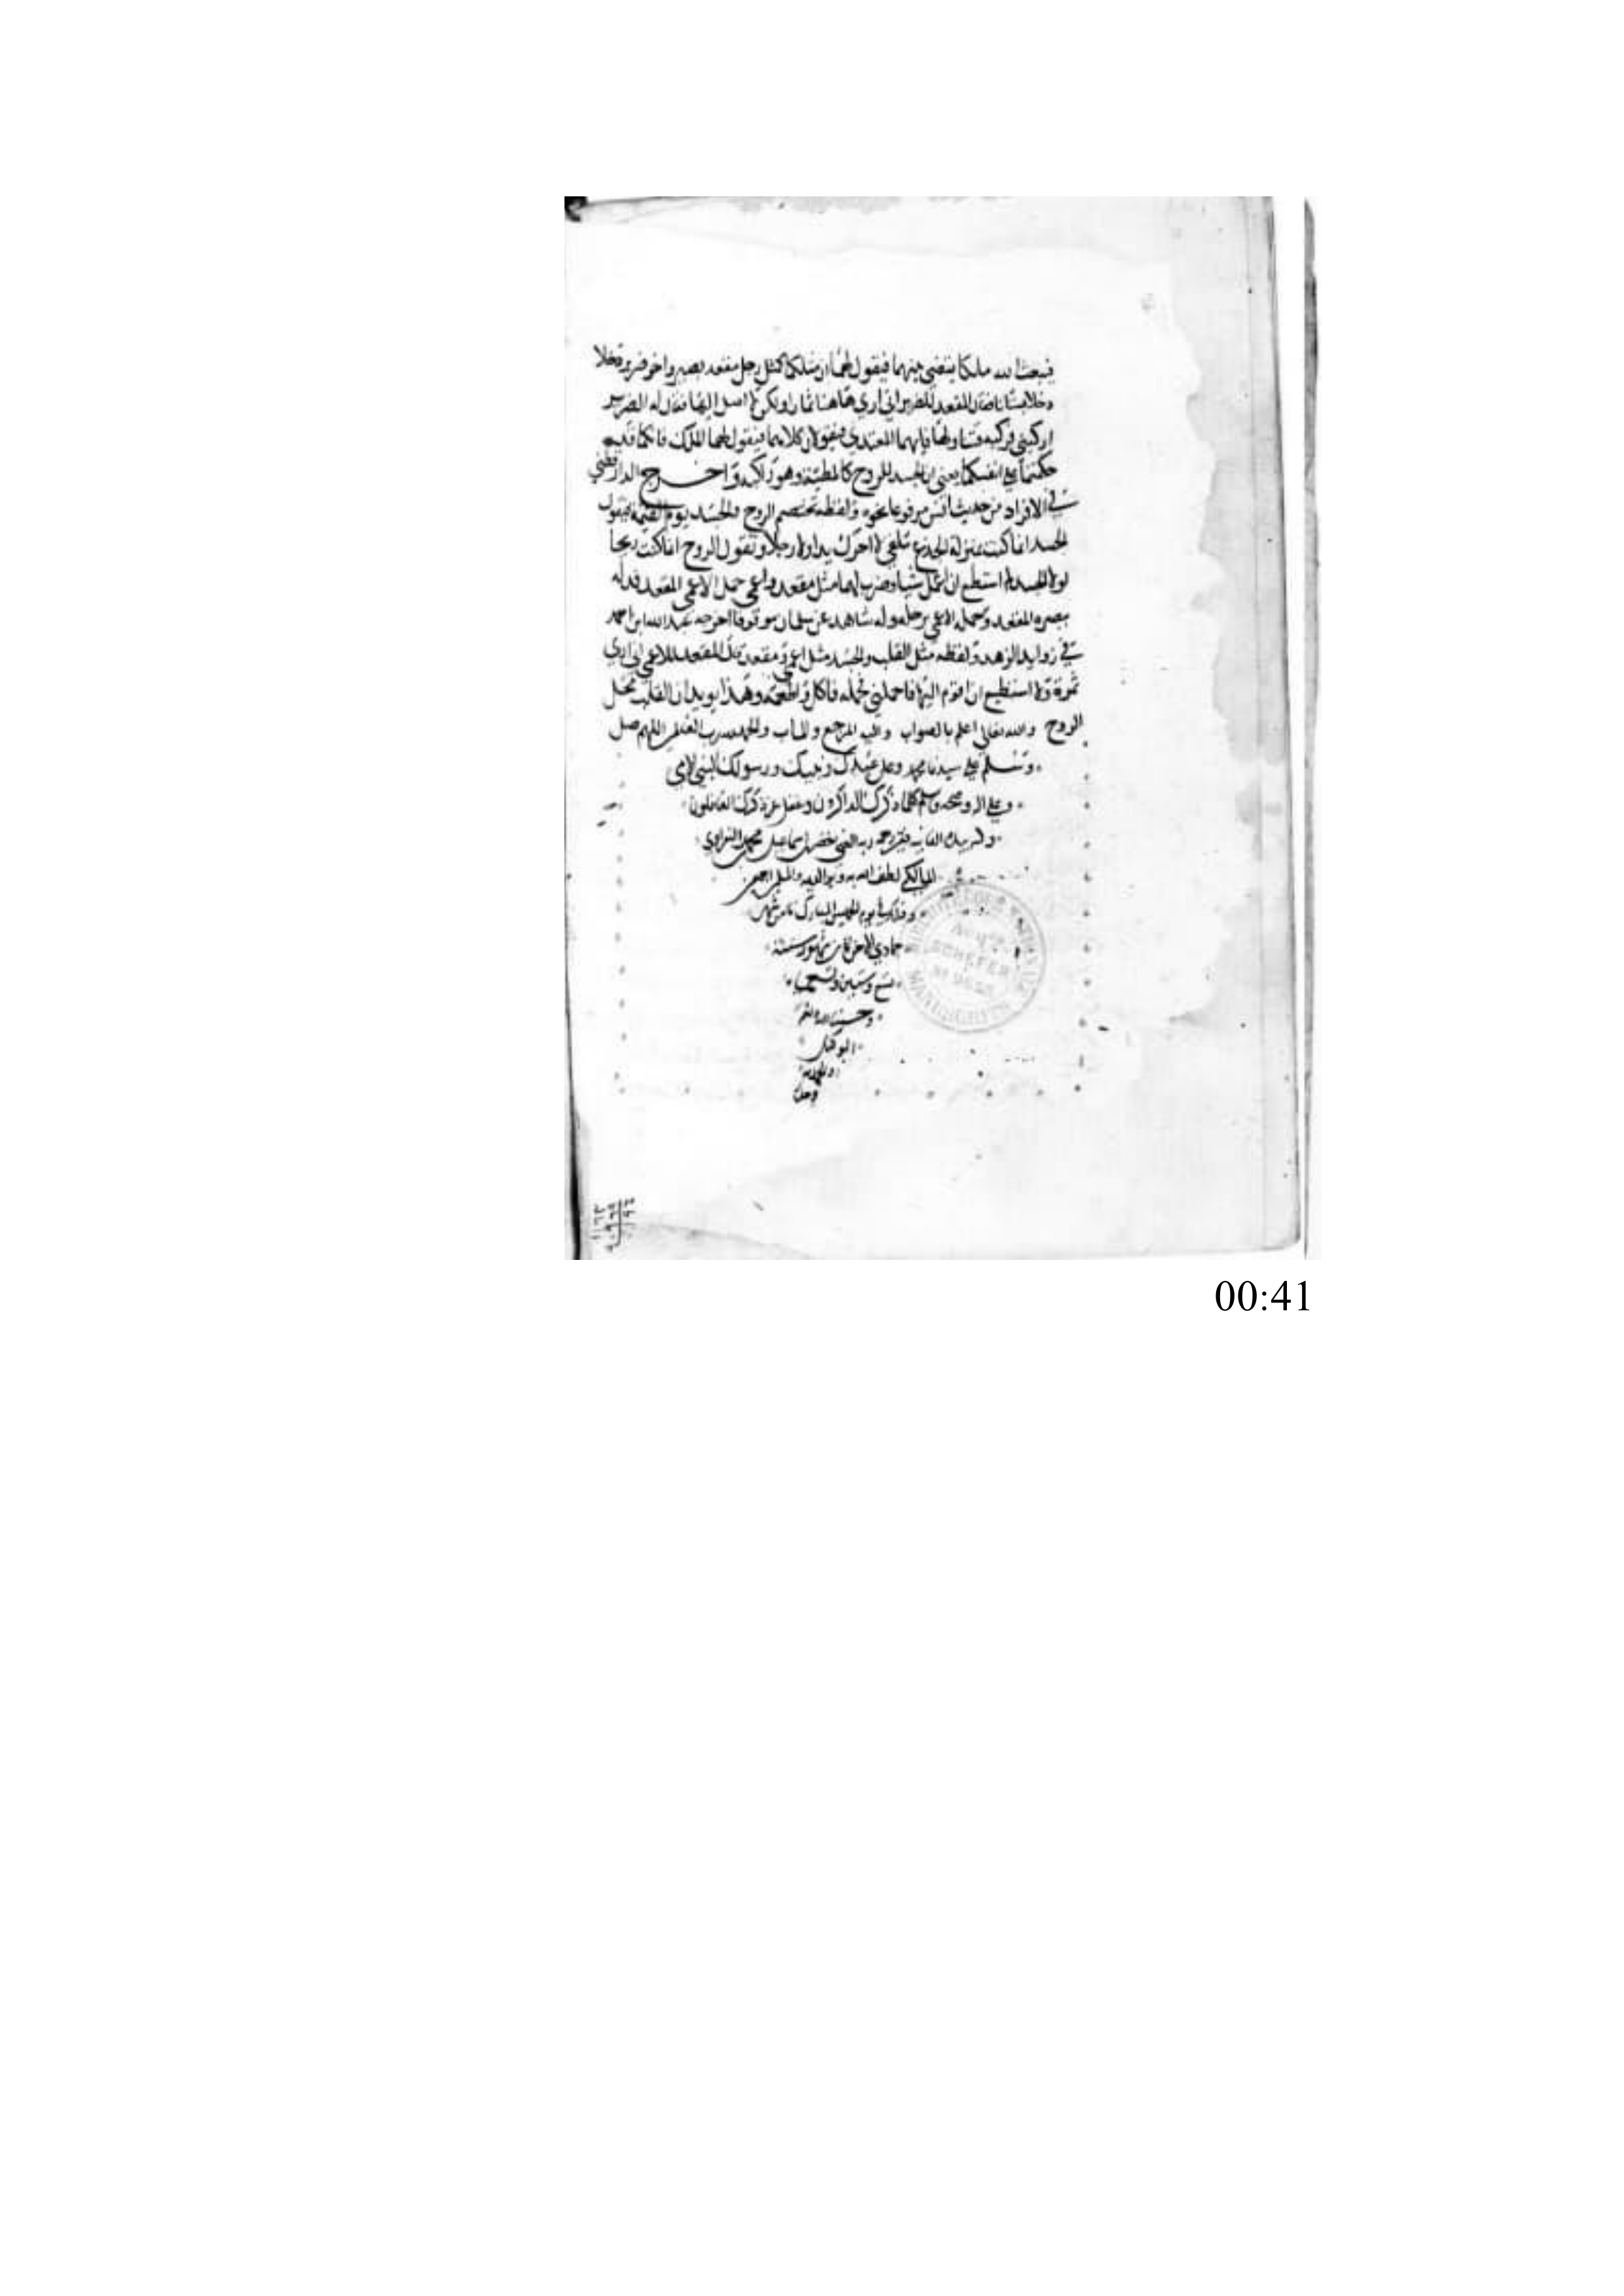 فيبعث الله ملكا يقضي بينهما فيقول لهما ان مثلكما كمثل رجل مقعد بصير واخر ضرير دخلا
دخلا بستانا فقال المقعد للضرير اني اري هاهنا ثمارا ولكن لا اصل اليها فقال له الضرير
اركبني فركبه فتناولها فايهما المعتدي فيقولان كلاهما فيقول لهما الملك فانكما قد
حكمتما علي انفسكما يعني ان الجسد للروح كالمطية وهو راكبه واخرج الدارقطني
في الافراد من حديث انس مرفوعا نحوه ولفظه تختصم الروح والجسد يوم القيمة فيقول
الجسد انما كنت بمنزلة الجذع ملقي لا احرك يدا ولا رجلا وتقول الروح انما كنت ريحا
لولا الجسد لم استطع ان اعمل شيا وضرب لهما مثل مقعد واعمي حمل الاعمي المقعد فدله
ببصره المقعد وحمله الاعمي برجله وله شاهد عن سلمان موقوفا اخرجه عبد الله ابن احمد
في زوايد الزهد ولفظه مثل القلب والجسد مثل اعمي ومقعد قال المقعد للاعمي اني اري
ثمرة ولا استطيع ان اقوم اليها فاحملني فحمله فاكل واطعمه وهذا يويد ان القلب محل
الروح والله تعالي اعلم بالصواب واليه المرجع والماب والحمد لله رب العلمين اللهم صل
وسلم علي سيدنا محمد وعلي عبدك ونبيك ورسولك النبي الامي
وعلي اله وصحبه وسلم كلما ذكرك الذاكرون وغفل عن ذكرك الغافلون
بيده الفانيه فقير رحمة ربه الغني اسماعيل محمد
المالكي لطف الله به وبوالديه والمسلمين اجمعين
يوم الخميس المبارك شهر
جمادي الاخر سنة
تسع وستين
وحسبنا الله ونعم
الوكيل
والحمد لله
وحده
BIBLIOTHEQUE NATIONALE
SCHEFER
MANUSCRITS
00:41